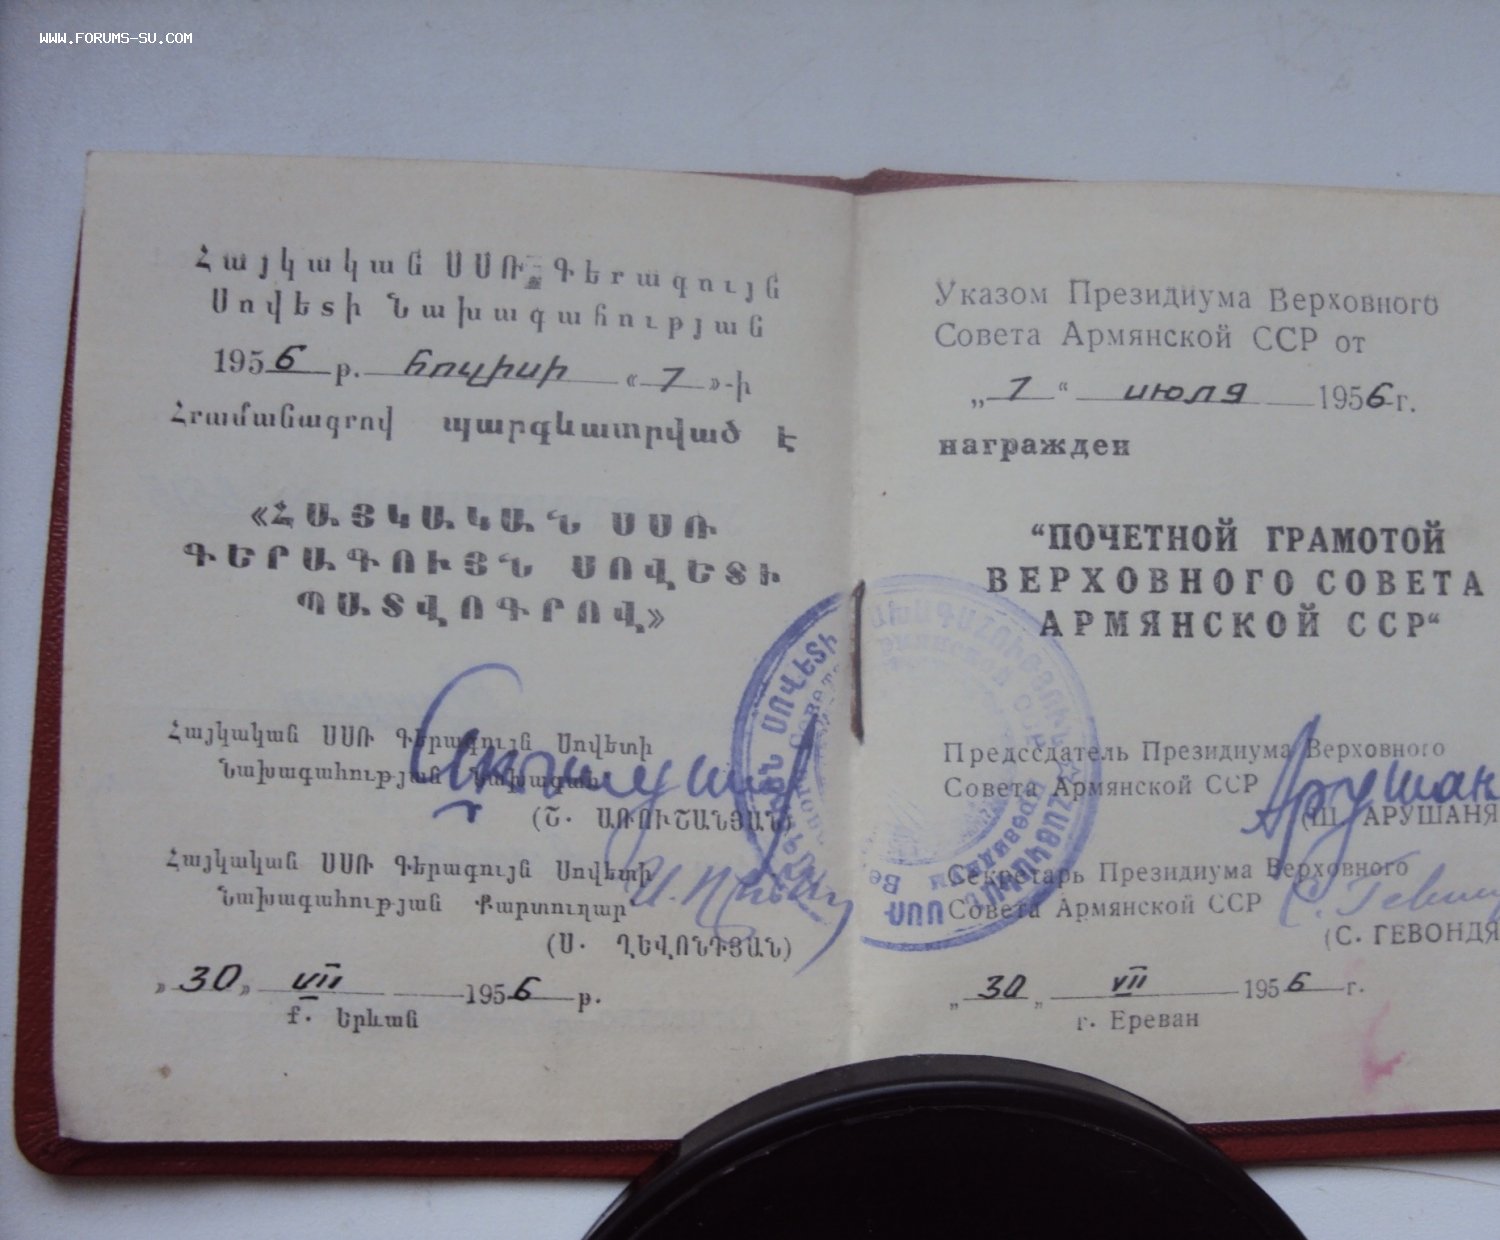 WWW.FORUMS-SU.COM
Հայկական ՍՍՌ Գերագույն
Սովետի Նախագահության
1956 թ. հուլիսի «7»-ի
Հրամանագրով պարգևատրված է
«ՀԱՅԿԱԿԱՆ ՍՍՌ
ԳԵՐԱԳՈՒՅՆ ՍՈՎԵՏԻ
ՊԱՏՎՈԳՐՈՎ»
Հայկական ՍՍՌ Գերագույն Սովետի
Նախագահության Նախագահ
(Շ. ԱՌՈՒՇԱՆՅԱՆ)
Հայկական ՍՍՌ Գերագույն Սովետի
Նախագահության Քարտուղար
(Ս. ՂԵՎՈՆԴՅԱՆ)
„30„ VII 1956 թ.
ք. Երևան
Указом Президиума Верховного
Совета Армянской ССР от
„7“ июля 1956 г.
награжден
“ПОЧЕТНОЙ ГРАМОТОЙ
ВЕРХОВНОГО СОВЕТА
АРМЯНСКОЙ ССР“
Председатель Президиума Верховного
Совета Армянской ССР
Арушан
(Ш. АРУШАНЯ
Секретарь Президиума Верховного
Совета Армянской ССР
(С. ГЕВОНДЯ
„30„ VII 1956 г.
г. Ереван